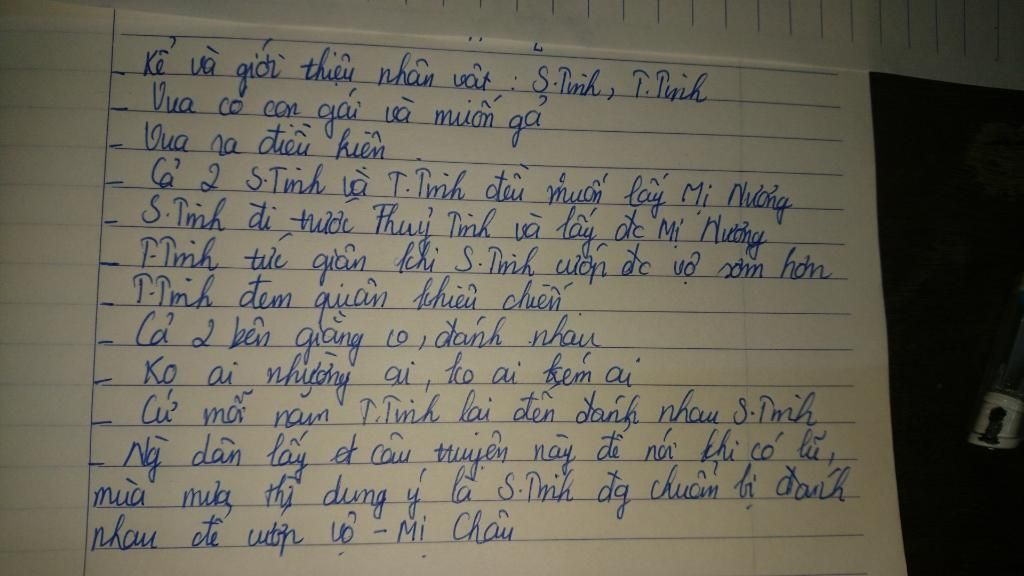 - Kể và giới thiệu nhân vật : S.Tinh, T.Tinh
- Vua có con gái và muốn gả
- Vua ra điều kiện
- Cả 2 S.Tinh và T.Tinh đều muốn lấy Mị Nương
- S.Tinh đi trước Thuỷ Tinh và lấy đc Mị Nương
- T.Tinh tức giận khi S.Tinh cướp đc vợ sớm hơn
- T.Tinh đem quân khiêu chiến
- Cả 2 bên giằng co, đánh nhau
- Ko ai nhường ai, ko ai kém ai
- Cứ mỗi năm T.Tinh lại đến đánh nhau S.Tinh
- Ng dân lấy câu truyện này để nói khi có lũ,
mùa mưa thì dụng ý là S.Tinh đg chuẩn bị đánh
nhau để cướp vợ - Mị Châu